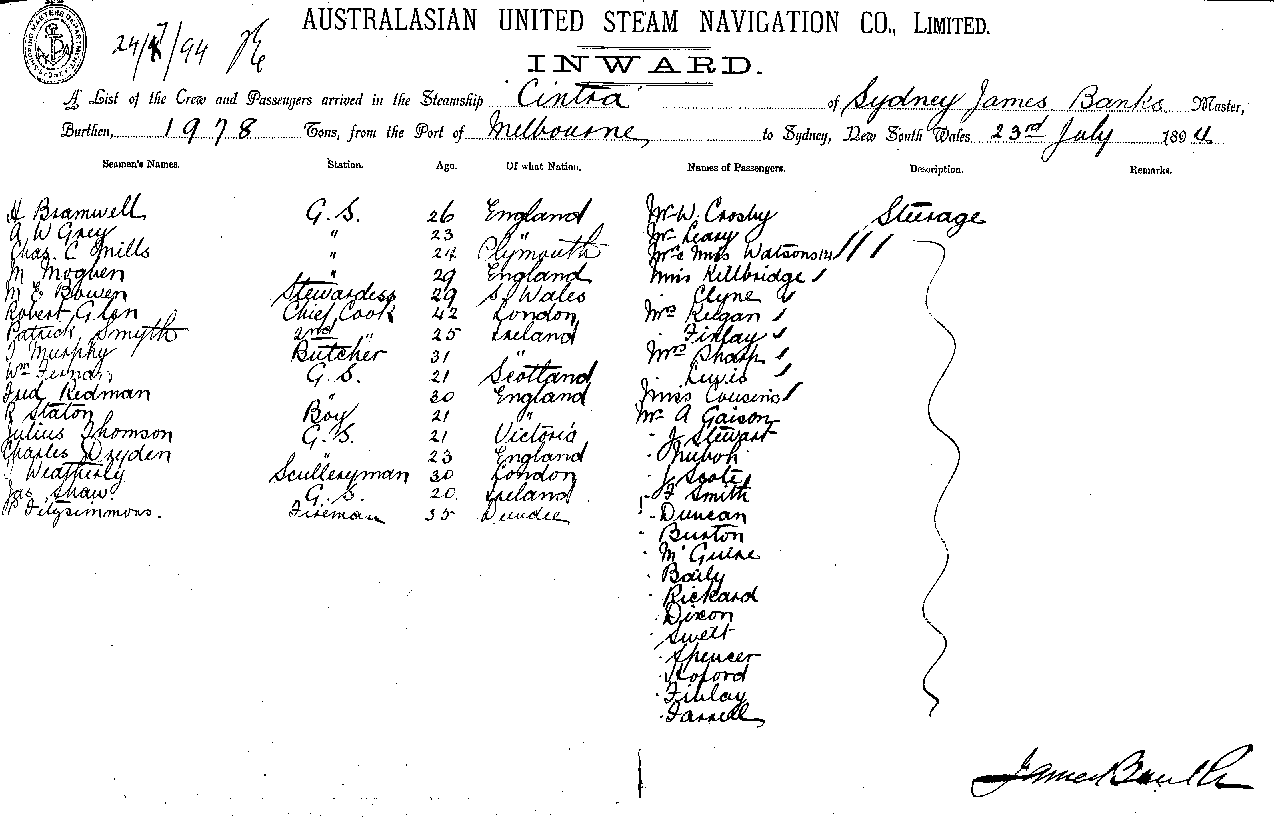 24/7/94
AUSTRALASIAN UNITED STEAM NAVIGATION CO., LIMITED.
INWARD.
A List of the Crew and Passengers arrived in the Steamship Cintra of Sydney James Banks Master,
Burthen, 1978 Tons, from the Port of Melbourne to Sydney, New South Wales 23rd July 1894
Seamen's Names. Station. Age. Of what Nation. Names of Passengers. Description. Remarks.
H Bramwell G.S. 26 England Mr W. Crosby Steerage
A W Grey " 23 " Mr Leary
Chas. C Mills " 24 Plymouth Mr & Mrs Watson
M Moghen " 29 England Miss Killbridge
M E Bowen Stewardess 29 S. Wales Clyne
Robert Glen Chief Cook 42 London Mrs Keegan
Patrick Smyth 2nd " 25 Ireland Finlay
J Murphy Butcher 31 " Mrs Sharp
Wm G.S. 21 Scotland Lewis
Fred Redman " 30 England Miss Cousins
R Staton Boy 21 " Mr A Gaison
Julius Thomson G.S. 21 Victoria J Stewart
Charles Dryden " 23 England
Weatherly Sculleryman 30 London J Scote
Jas. Shaw G.S. 20 Ireland F Smith
P Fitzsimmons. Fireman 35 Dundee Duncan
Burton
McGuire
Baily
Rickard
Dixon
Swett
Spencer
Finlay
Farrell
James Banks